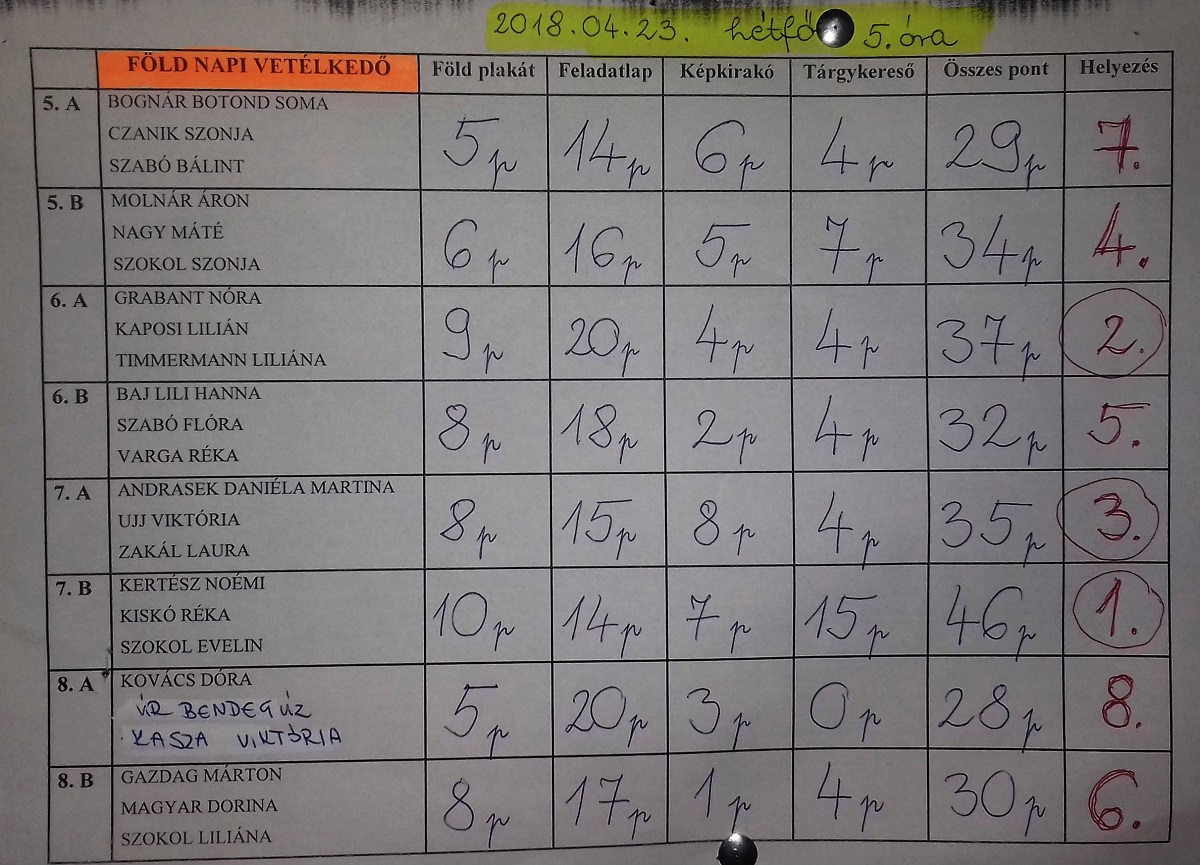 2018.04.23. hétfő 5. óra
FÖLD NAPI VETÉLKEDŐ Föld plakát Feladatlap Képkirakó Tárgykereső Összes pont Helyezés
5. A BOGNÁR BOTOND SOMA
CZANIK SZONJA
SZABÓ BÁLINT
5p 14p 6p 4p 29p 7.
5. B MOLNÁR ÁRON
NAGY MÁTÉ
SZOKOL SZONJA
6p 16p 5p 7p 34p 4.
6. A GRABANT NÓRA
KAPOSI LILIÁN
TIMMERMANN LILIÁNA
9p 20p 4p 4p 37p 2.
6. B BAJ LILI HANNA
SZABÓ FLÓRA
VARGA RÉKA
8p 18p 2p 4p 32p 5.
7. A ANDRASEK DANIÉLA MARTINA
UJJ VIKTÓRIA
ZAKÁL LAURA
8p 15p 8p 4p 35p 3.
7. B KERTÉSZ NOÉMI
KISKÓ RÉKA
SZOKOL EVELIN
10p 14p 7p 15p 46p 1.
8. A KOVÁCS DÓRA
ÚR BENDEGÚZ
KASZA VIKTÓRIA
5p 20p 3p 0p 28p 8.
8. B GAZDAG MÁRTON
MAGYAR DORINA
SZOKOL LILIÁNA
8p 17p 1p 4p 30p 6.